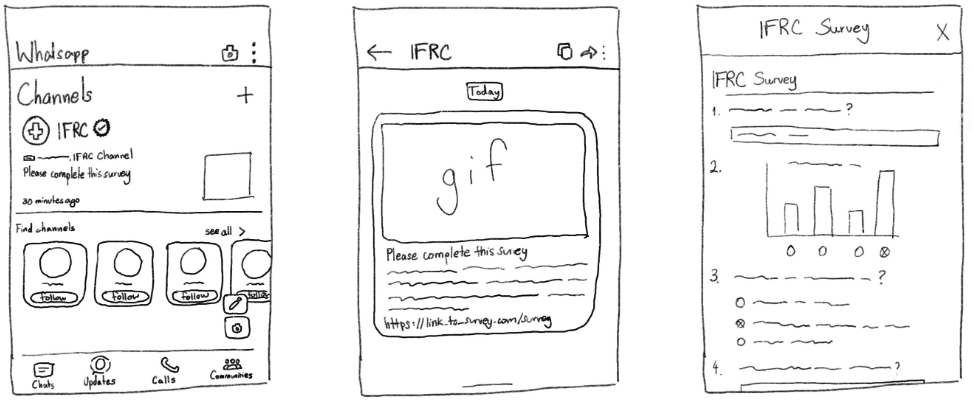 Whatsapp
Channels +
IFRC
IFRC Channel
Please complete this survey
30 minutes ago
Find channels see all >
follow follow follow follow
Chats Updates Calls Communities
IFRC
Today
gif
Please complete this survey
https://link_to_survey.com/survey
IFRC Survey X
IFRC Survey
1. ?
2.
3. ?
4. ?